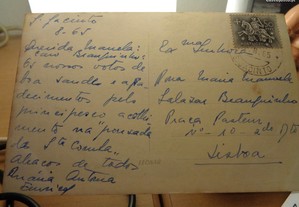 S. Jacinto
8-65
Querida Manuela:
Os nossos votos de
boa saude e agra-
decimentos pelo
principesco acolhi-
mento na pousada
da Sta
Abraços de todos
Maria Antonia
Exma Senhora
Dona Maria Manuela
Salazar
Praça Pasteur
Nº - 10 - 2º Dto
Lisboa